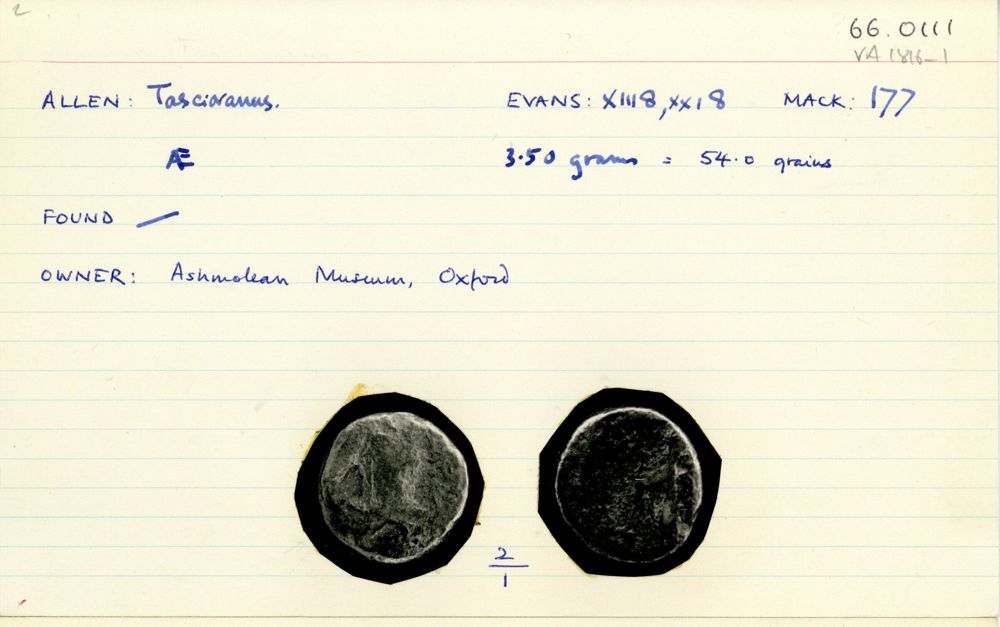 2
66.0111
VA 1816-1
ALLEN: Tasciovanus. EVANS: XIII 8, xxi 8 MACK: 177
Æ 3.50 grams = 54.0 grains
FOUND —
OWNER: Ashmolean Museum, Oxford
2
1